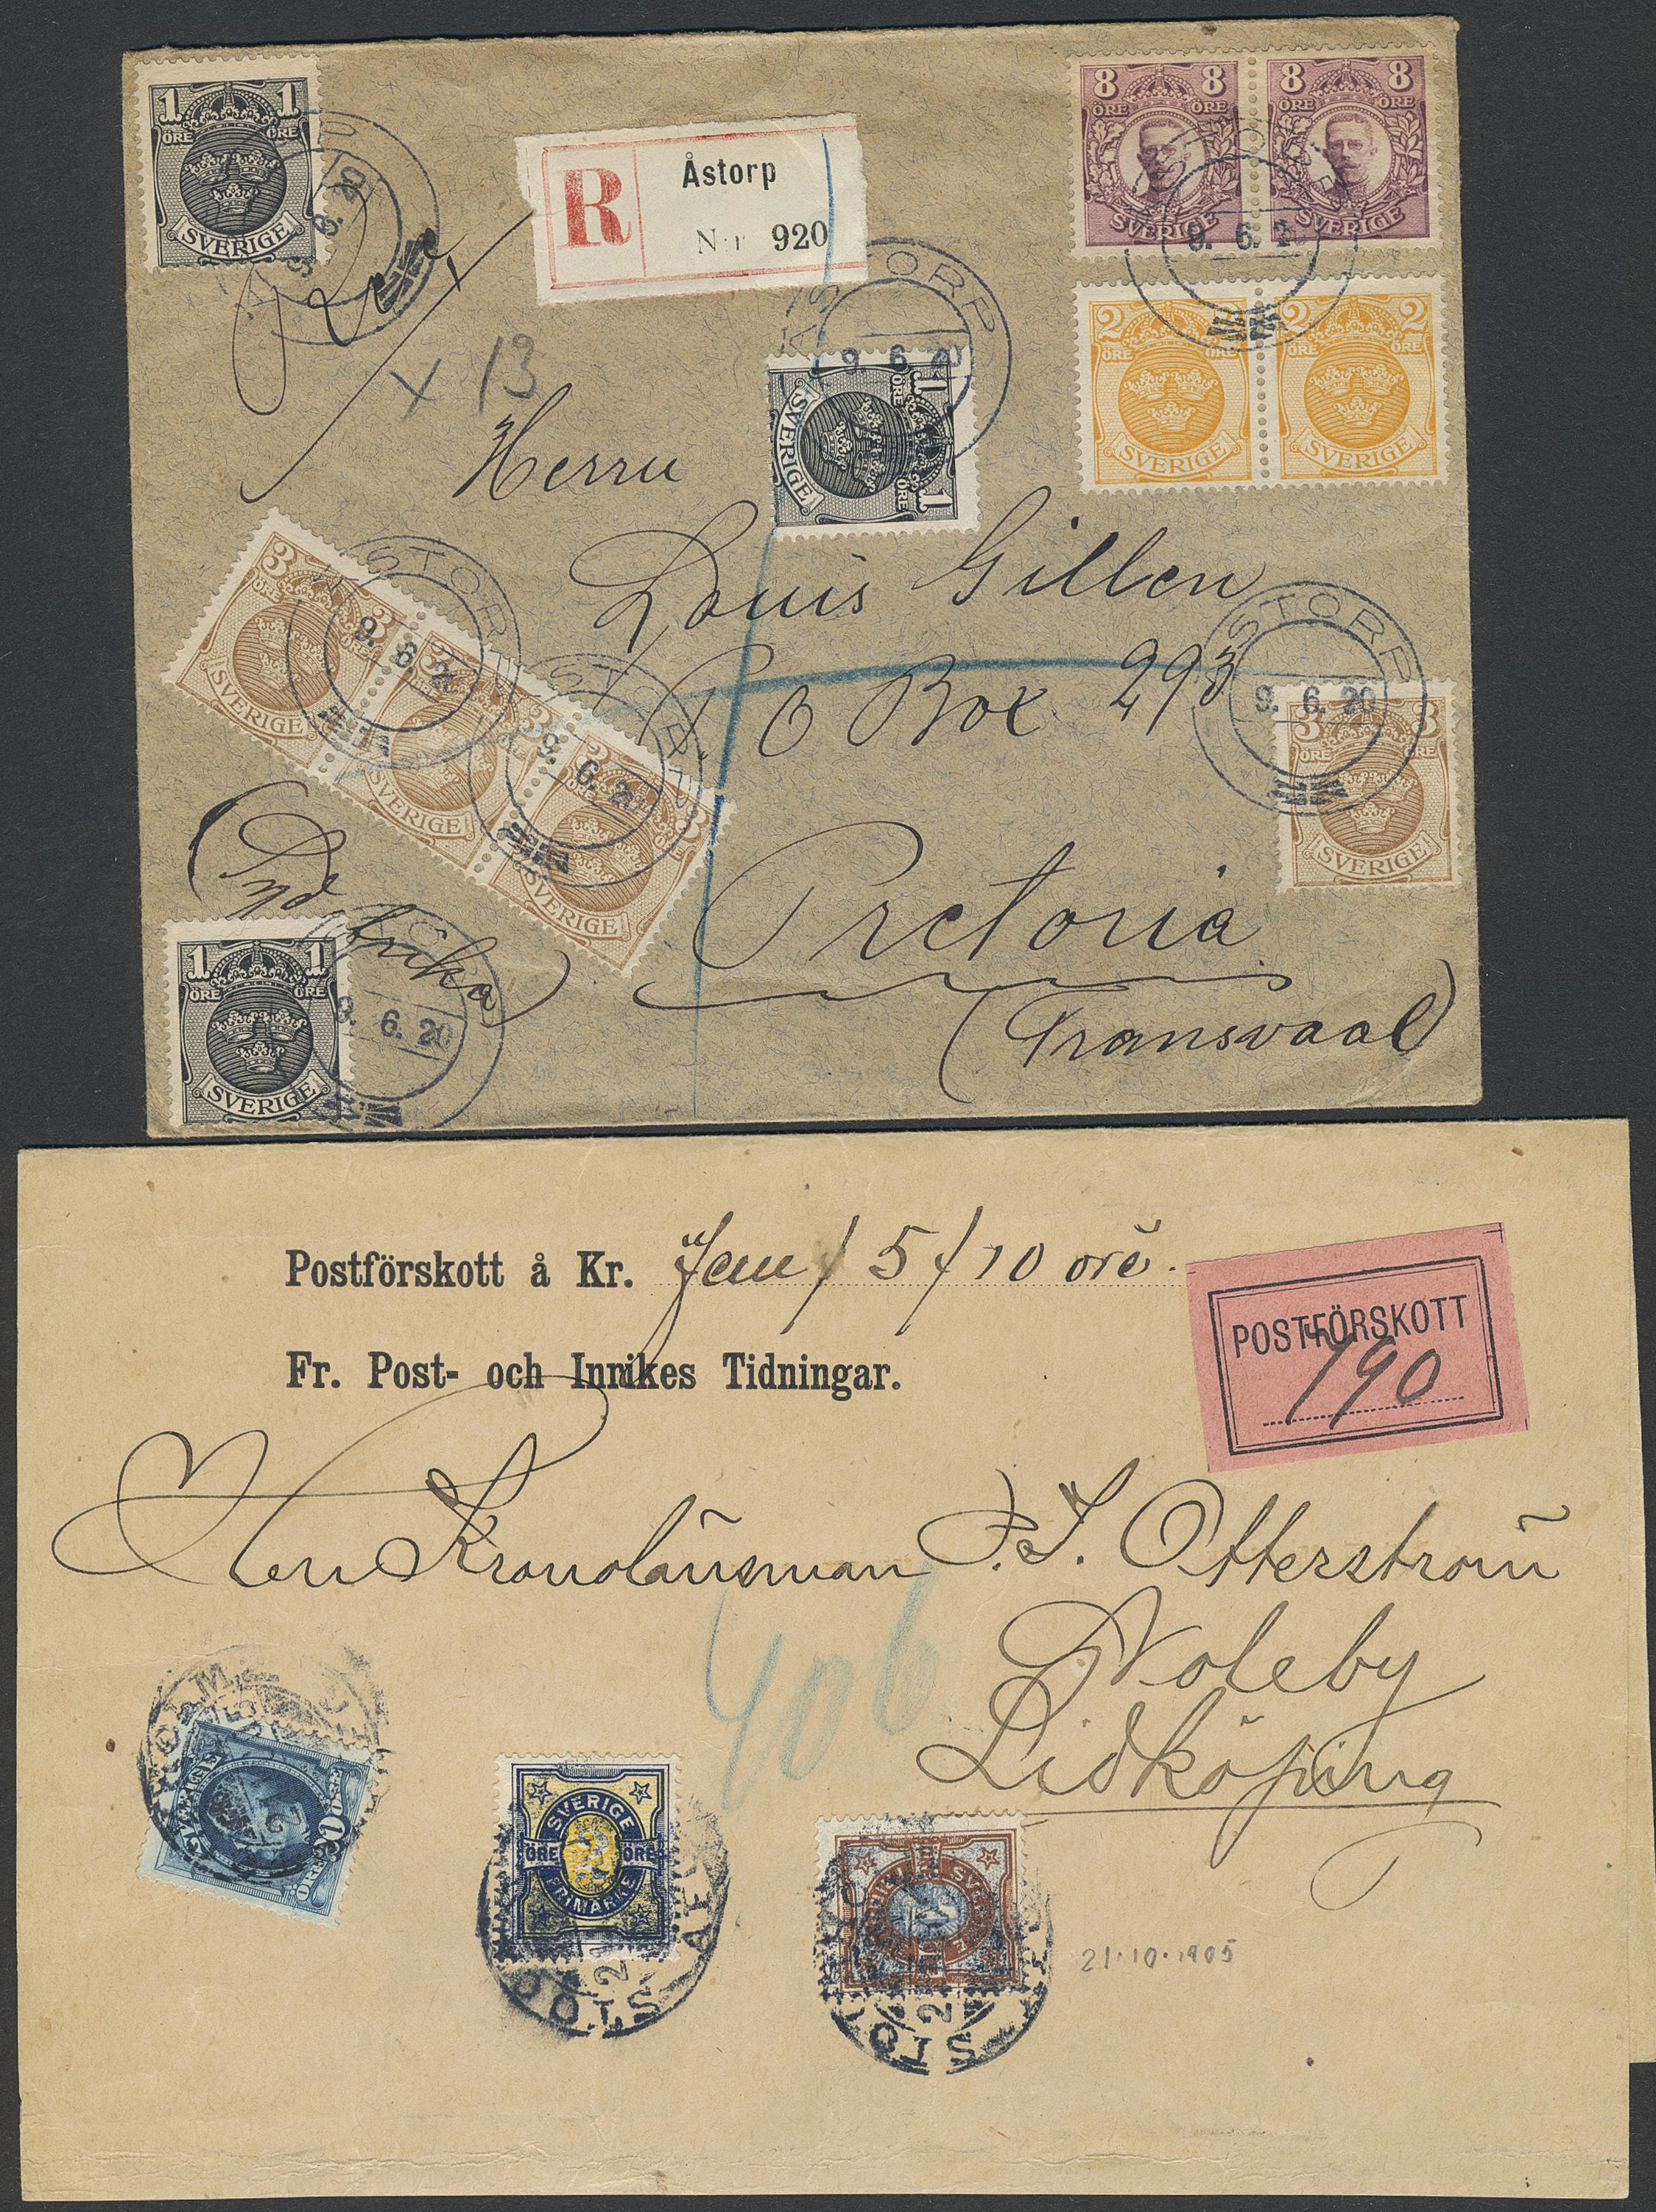 1 1
ÖRE ÖRE
SVERIGE
R
Åstorp
Nr 920
8 8
ÖRE ÖRE
SVERIGE
8 8
ÖRE ÖRE
SVERIGE
9. 6. 20
2 2
ÖRE ÖRE
SVERIGE
2 2
ÖRE ÖRE
SVERIGE
ÅSTORP
9 6 20
1 1
ÖRE ÖRE
SVERIGE
x 13
Herrn
Louis Gillen
P O Box 293
Pretoria
(Transvaal)
(Syd Afrika)
3 3
ÖRE
SVERIGE
3 3
SVERIGE
3 3
SVERIGE
ÅSTORP
9. 6. 20
ÅSTORP
9. 6. 20
ÅSTORP
9. 6. 20
3 3
ÖRE
SVERIGE
1 1
ÖRE ÖRE
SVERIGE
9. 6. 20
Postförskott å Kr. Fem / 5 / 10 öre.
Fr. Post- och Inrikes Tidningar.
POSTFÖRSKOTT
790
Herr Kronolänsman P. J. Otterström
Noleby
Lidköping
406
20
SVERIGE
SVERIGE
ÖRE 2 ÖRE
FRIMÄRKE
SVERIGE
21.10.1905